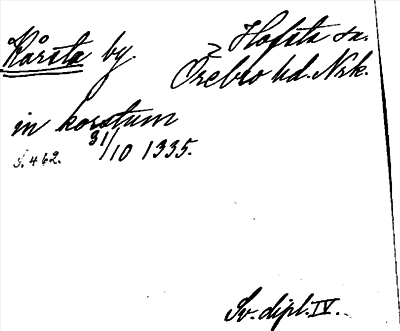 Kårsta by.
Hofsta sn.
Örebro hd. Nrk.
in korstum
S. 462. 31/10 1335.
Sv. dipl. IV.